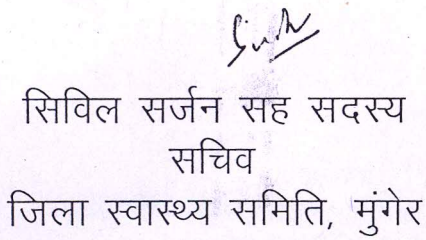 सिविल सर्जन सह सदस्य
सचिव
जिला स्वास्थ्य समिति, मुंगेर